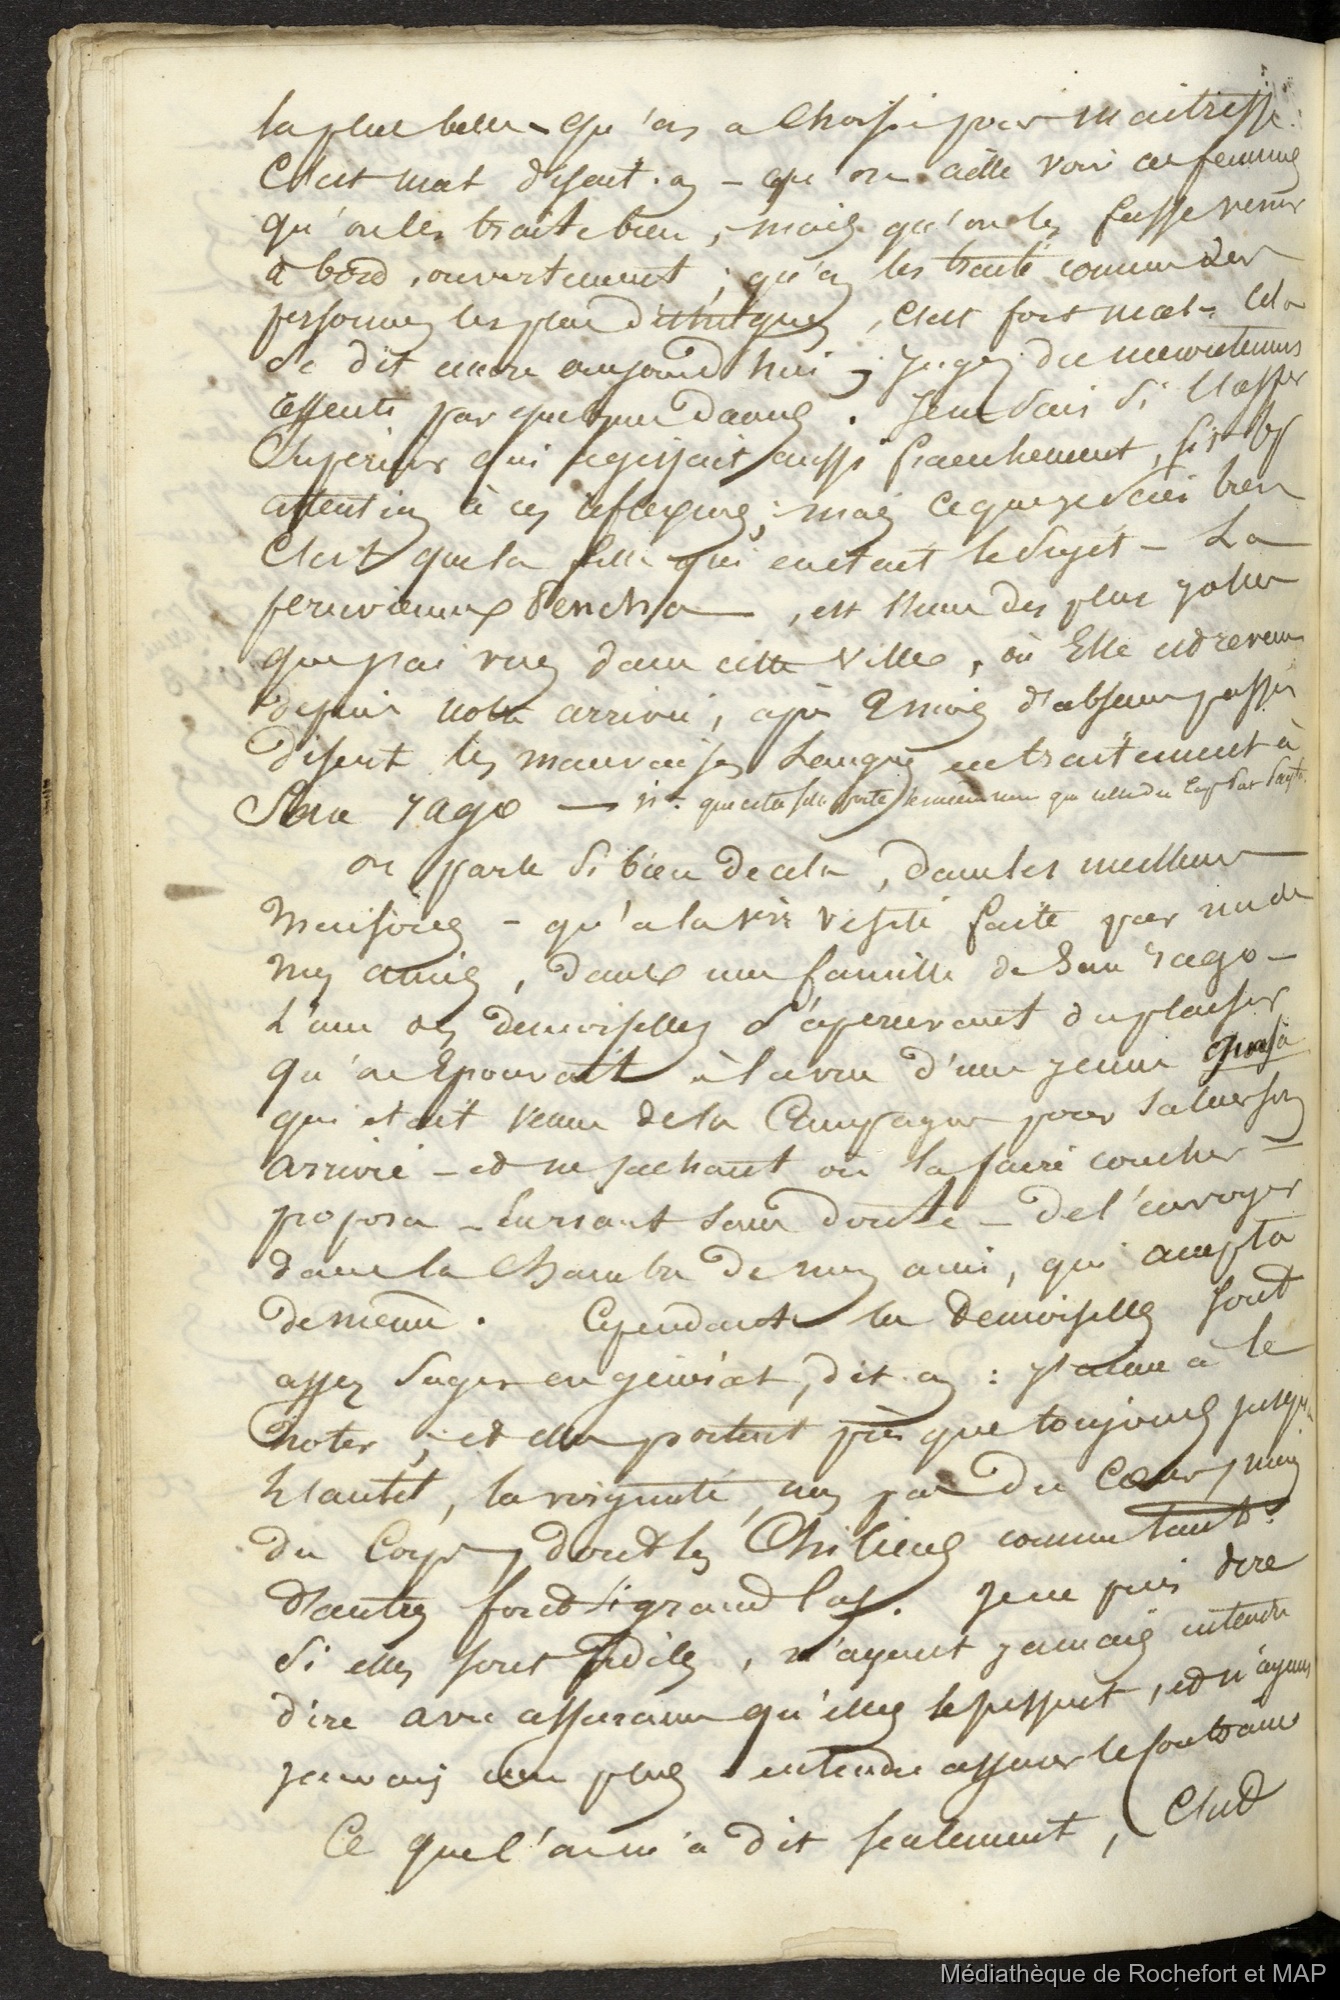 la plus belle - qu'on a choisi pour maitresse.
C'est mal disait-on - que on aille voir ces femmes
qu'on les traite bien, mais qu'on les fasse venir
à bord, ouvertement ; qu'on les traite comme des
personnes les plus distinguées, c'est fort mal - Cela
se dit encore aujourd'hui ; jugez du mécontentement
par quelques dames. Je ne sais si l'offer
Supérieur qui agissait aussi franchement, fit bp
attention à ces réflexions ; mais ce que je sais bien
C'est que la fille qui en était le sujet - La
peruvienne Pencha , est l'une des plus jolies
que j'ai vues dans cette ville, où Elle est revenue
depuis notre arrivée, après 2 mois d'absence passés
disent les mauvaises Langues en traitement à
San Yago —
on parle si bien de cela, dans les meilleures
maisons - qu'à la 1ère visite faite par un de
mes amis, dans une famille de San Yago -
L'une des demoiselles s'apercevant du plaisir
qu'on Epouvait à la vue d'une jeune
qui était venue de la Campagne pour saluer son
arrivée - et ne sachant où la faire coucher -
proposa - en riant sans doute - de l'envoyer
dans la chambre de mon ami, qui accepta
de même. Cependant les Demoiselles sont
assez sages en général, dit-on : j'aime à le
noter ; et elles portent presque toujours jusqu'à
l'autel, la virginité, non pas du Coeur, mais
du Corps, dont les Chiliens comme tant
d'autres font si grand cas. Je ne puis dire
si elles sont fidèles, n'ayant jamais entendu
dire avec assurance qu'elles le fussent, et n'ayant
jamais non plus entendu assurer le contraire
Ce que l'on m'a dit seulement, C'est
Médiathèque de Rochefort et MAP